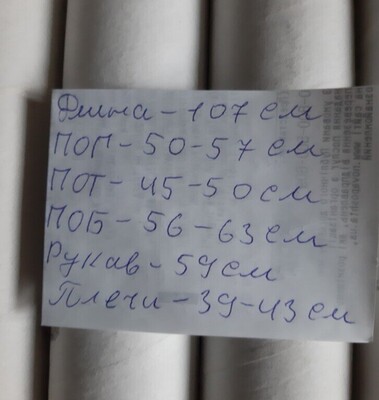 Длина - 107 см
ПОГ - 50-57 см
ПОТ - 45-50 см
ПОБ - 56-63 см
Рукав - 59 см
Плечи - 39-43 см